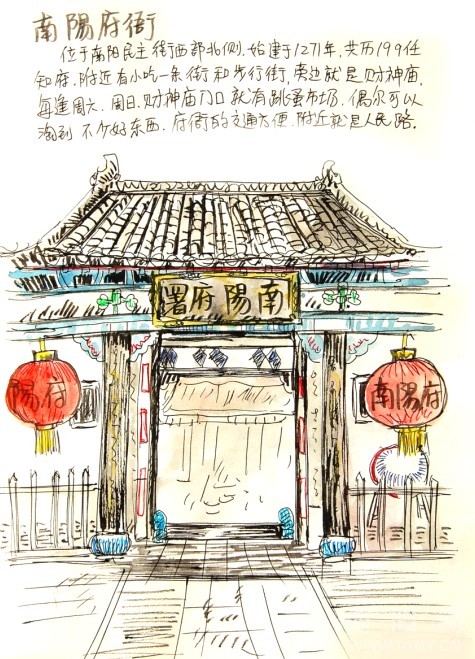 南陽府衙
位于南阳民主街西部北侧，始建于1271年，共历199任
知府，附近有小吃一条街和步行街，旁边就是财神庙，
每逢周六、周日，财神庙门口就有跳蚤市场，偶尔可以
淘到不少好东西，府衙的交通方便，附近就是人民路。
南陽府署
陽府
南陽府